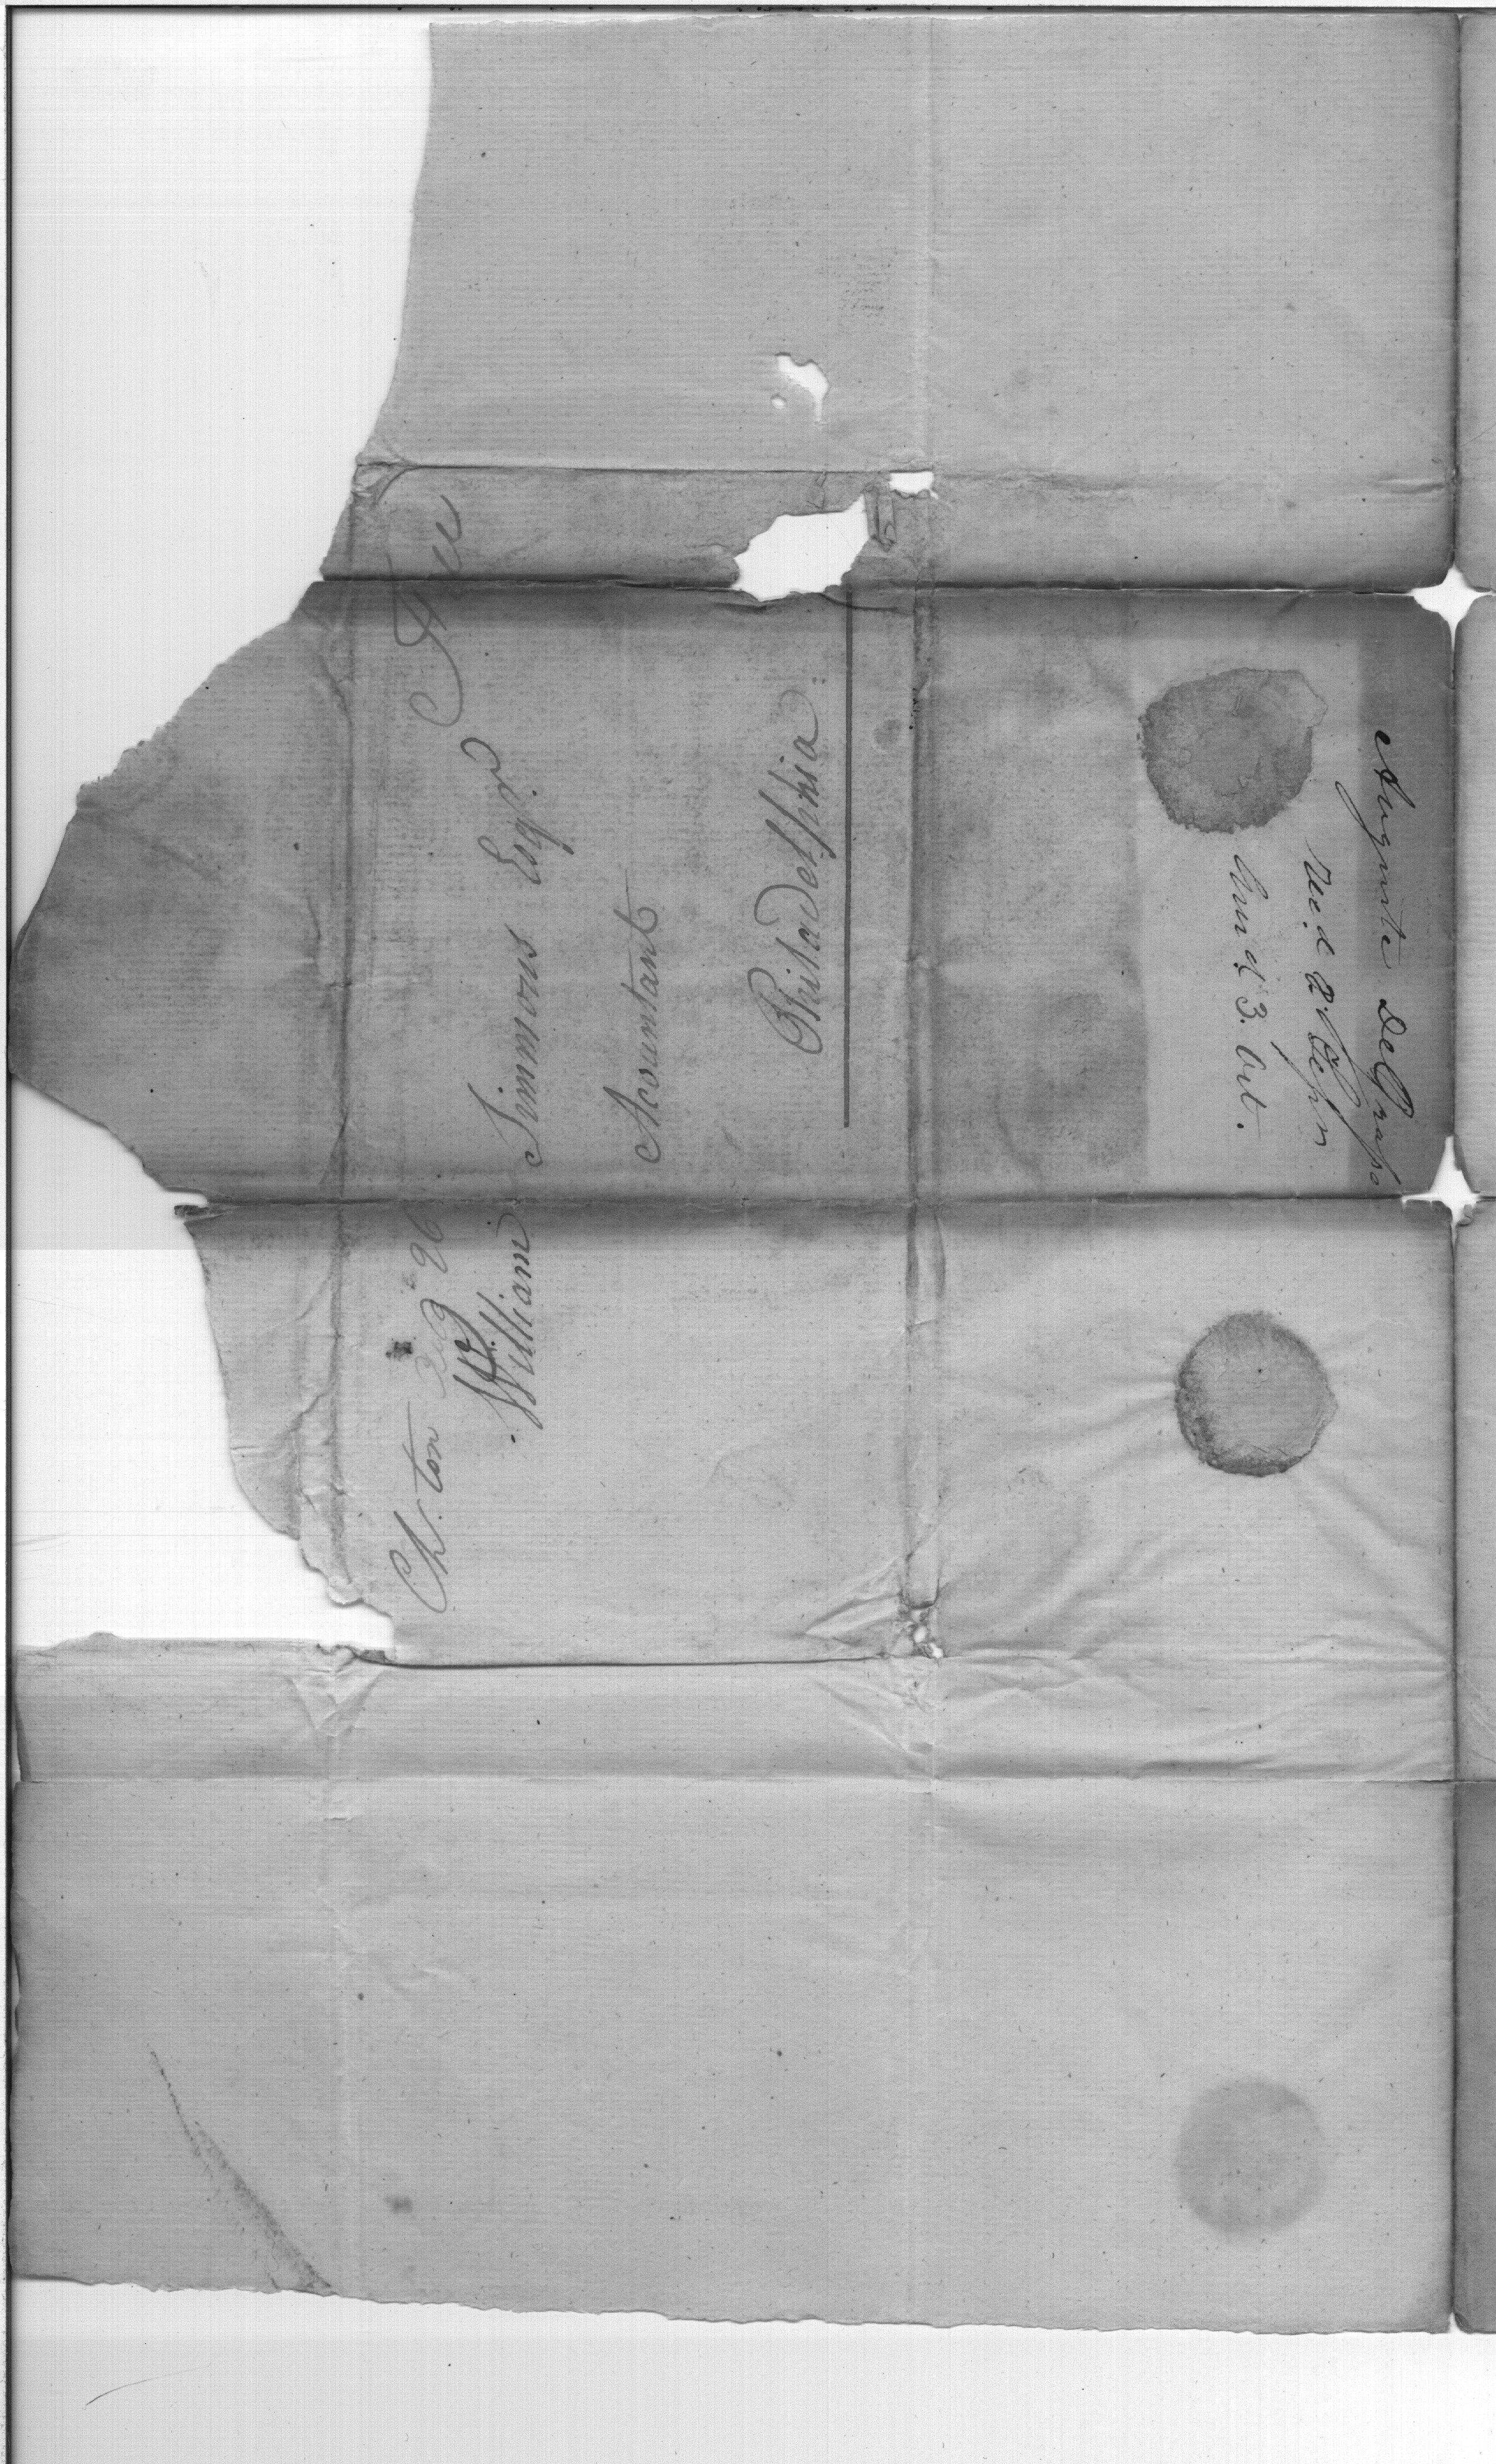 Ch.ton Aug 96 Free
William Simmons Esqr.
Acountant
Philadelphia
Auguste DeGraſse
Rec.d 2.d Sepr
Ans.d 3. Oct.